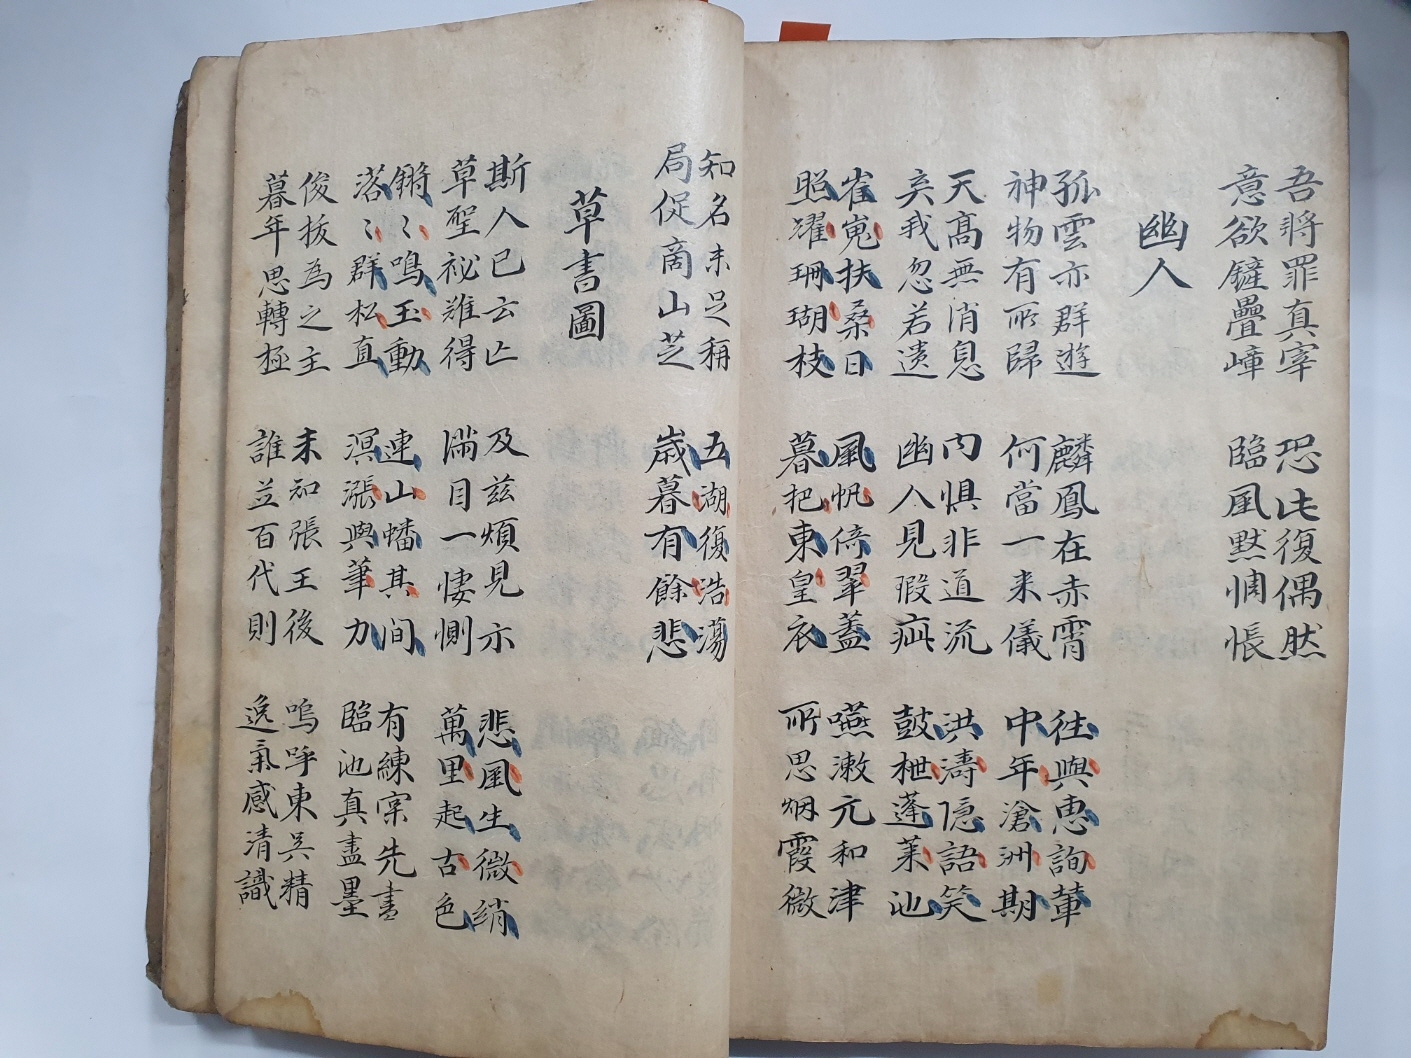 吾將罪真宰
意欲鏟疊嶂
恐此復偶然
臨風默惆悵
幽人
孤雲亦群遊
神物有所歸
麟鳳在赤霄
何當一来儀
往與惠詢輩
中年滄洲期
天高無消息
弃我忽若遺
内惧非道流
幽人見瑕疵
洪濤隱語笑
鼓枻蓬萊池
崔嵬扶桑日
照耀珊瑚枝
風帆倚翠蓋
暮把東皇衣
嚥漱元和津
所思烟霞微
知名未足稱
局促商山芝
五湖復浩蕩
歲暮有餘悲
草書圖
斯人已云亡
草聖祕難得
及茲煩見示
滿目一悽惻
悲風生微綃
萬里起古色
鏘〻鳴玉動
落〻群松直
連山蟠其間
溟漲與筆力
有練實先書
臨池真盡墨
俊拔為之主
暮年思轉極
未知張王後
誰並百代則
嗚呼東吳精
逸氣感清識